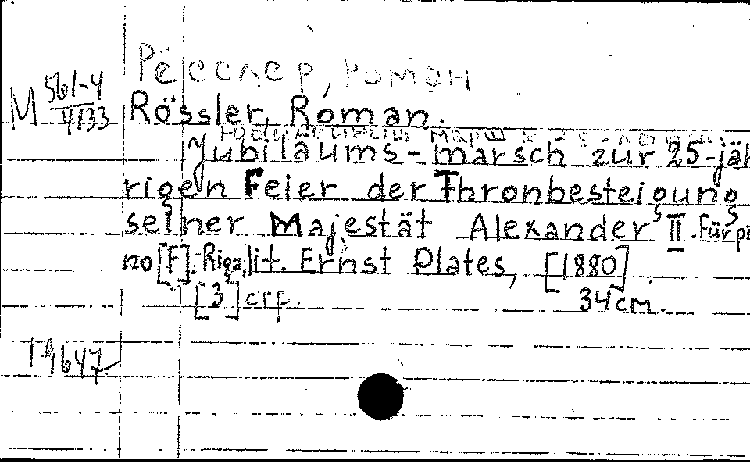 Рёсслер, Роман
М 561-4
4133
Rössler, Roman.
Юбилейный марш
Jubiläums-marsch zur 25-jäh
rigen Feier der Thronbesteigung
seiner Majestät Alexander II. Für pi
no [F]. Riga, lit. Ernst Plates, [1880].
[3] стр. 34 cm.
19647